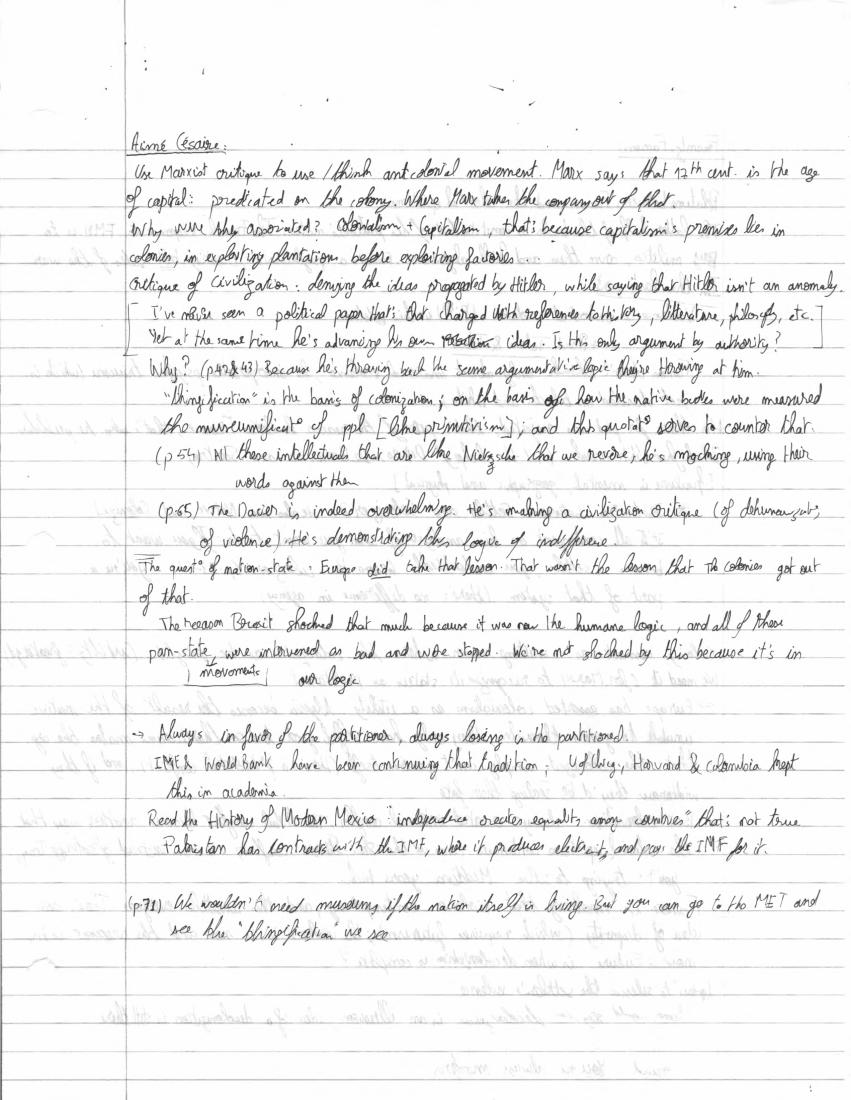 Aimé Césaire:
Use Marxist critique to use / think anticolonial movement. Marx says that 17th cent. is the age
of capital: predicated on the colony. Where Marx takes the company out of that.
Why were they associated? Colonialism + Capitalism, that's because capitalism's premises lies in
colonies, in exploiting plantations before exploiting factories.
Critique of Civilization: denying the ideas propagated by Hitler, while saying that Hitler isn't an anomaly.
[ I've never seen a political paper that's that charged with references to history, litterature, philosophy, etc. ]
Yet at the same time he's advancing his own ideas. Is this only argument by authority?
Why? (p.42&43) Because he's throwing back the same argumentative logic they're throwing at him.
"thingification" is the basis of colonization; on the basis of how the native bodies were measured
the museumificat° of ppl [like primitivism]; and this quotat° serves to counter that.
(p.54) All these intellectuals that are like Nietzsche that we revere, he's mocking, using their
words against them
(p.65) The Dacier is indeed overwhelming. He's making a civilization critique (of dehumanizat°,
of violence). He's demonstrating this logic of indifference
The quest° of nation-state: Europe did take that lesson. That wasn't the lesson that the colonies got out
of that.
The reason Brexit shocked that much because it was now the humane logic, and all of these
pan-state, were intervened as bad and were stopped. We're not shocked by this because it's in
movements
our logic
→ Always in favor of the partitioner, always losing is the partitioned.
IMF & World Bank have been continuing that tradition; U of Chicg., Harvard & Columbia kept
this in academia.
Read the History of Modern Mexico: "independence creates equality among countries" that's not true
Pakistan has contracts with the IMF, where it produces electricity, and pays the IMF for it.
(p.71) We wouldn't need museums if the nation itself is living. But you can go to the MET and
see the "thingification" we see